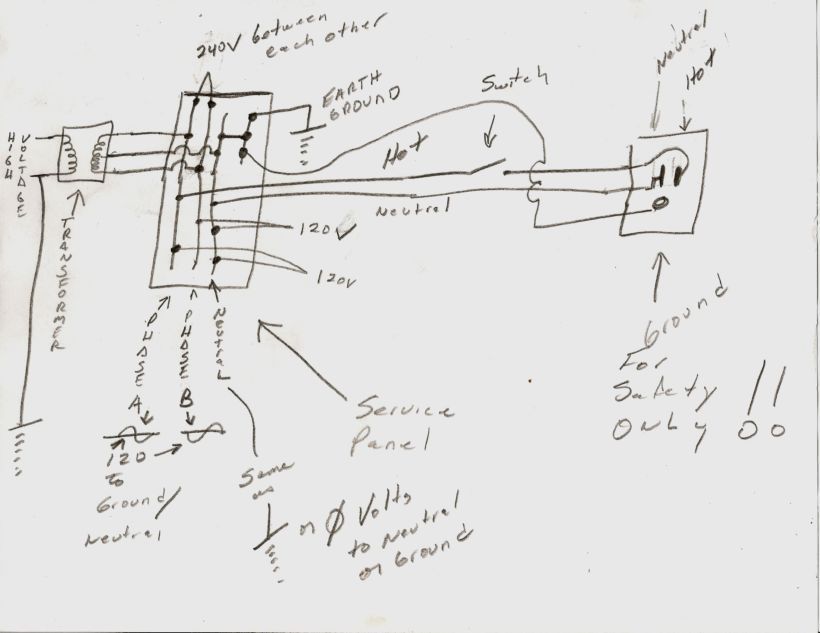 240V between
each other
EARTH
GROUND
Switch
Neutral
Hot
HIGH
VOLTAGE
TRANSFORMER
Hot
Neutral
120V
120V
PHASE A
PHASE B
NEUTRAL
120
to
Ground/
Neutral
Same
as
or Ø Volts
to Neutral
or Ground
Service
Panel
Ground
For
Safety
ONLY !!